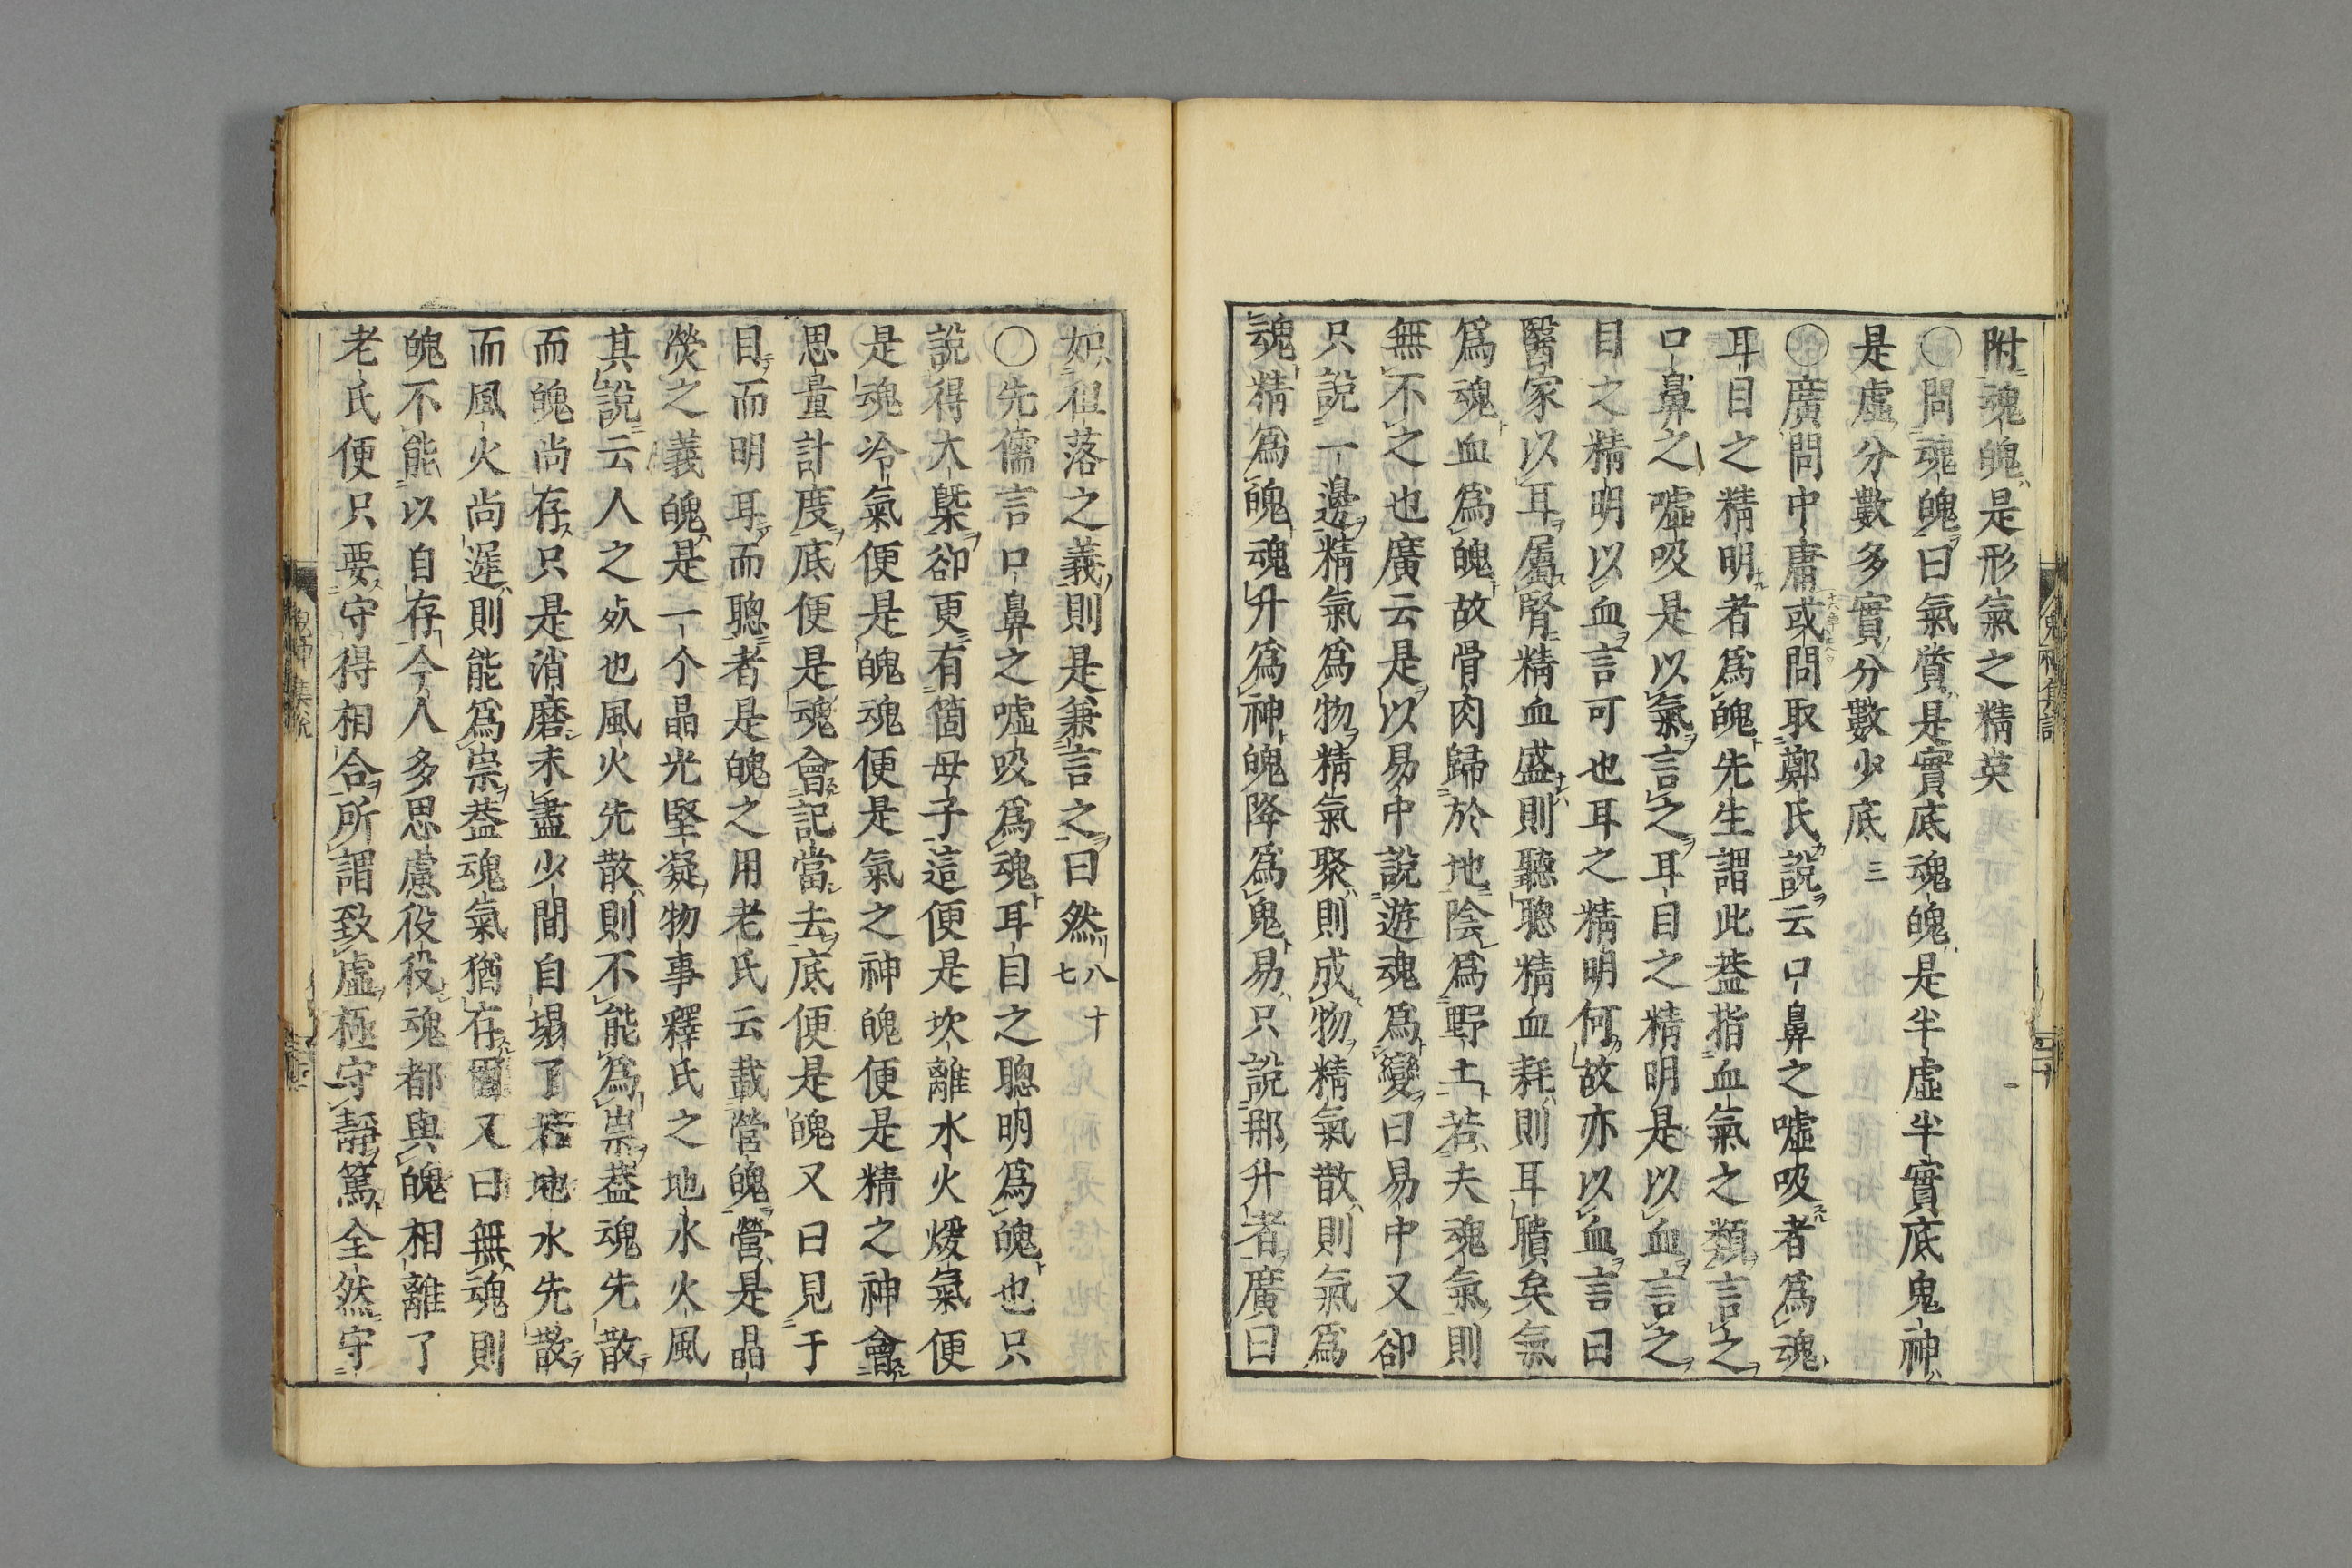 附魂魄是形氣之精英 一
○問魂魄曰氣質是實底魂魄是半虛半實底鬼神
是虛分數多實分數少底 三
○廣問中庸或問取鄭氏說云口鼻之噓吸者爲魂
耳目之精明者爲魄先生謂此葢指血氣之類言之
口鼻之噓吸是以氣言之耳目之精明是以血言之
目之精明以血言可也耳之精明何故亦以血言曰
醫家以耳屬腎精血盛則聽聰精血耗則耳聵矣氣
爲魂血爲魄故骨肉歸於地陰爲野土若夫魂氣則
無不之也廣云是以易中說遊魂爲變曰易中又卻
只說一邊精氣爲物精氣聚則成物精氣散則氣爲
魂精爲魄魂升爲神魄降爲鬼易只說那升者廣曰
如徂落之義則是兼言之曰然 八十七
○先儒言口鼻之噓吸爲魂耳目之聰明爲魄也只
說得大槩卻更有箇母子這便是坎離水火煖氣便
是魂冷氣便是魄魂便是氣之神魄便是精之神會
思量計度底便是魂會記當去底便是魄又曰見于
目而明耳而聰者是魄之用老氏云載營魄營是晶
熒之義魄是一个晶光堅凝物事釋氏之地水火風
其說云人之死也風火先散則不能爲祟葢魂先散
而魄尚存只是消磨未盡少間自塌了若地水先散
而風火尚遲則能爲祟葢魂氣猶存爾又曰無魂則
魄不能以自存今人多思慮役役魂都與魄相離了
老氏便只要守得相合所謂致虛極守靜篤全然守
鬼神集說